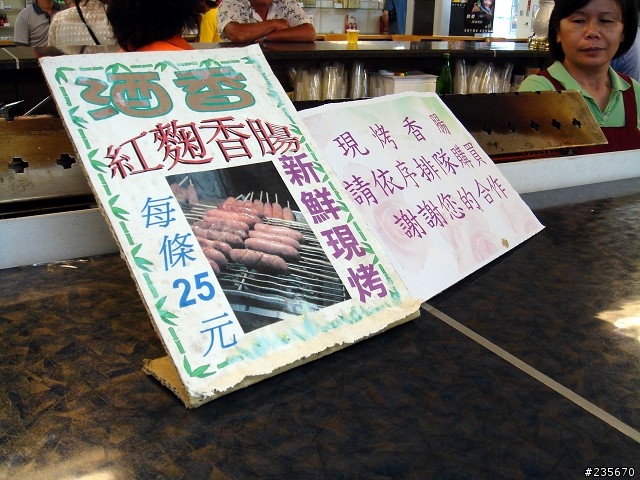 酒香
紅麴香腸
新鮮現烤
每條
25
元
現烤香腸
請依序排隊購買
謝謝您的合作
#235670